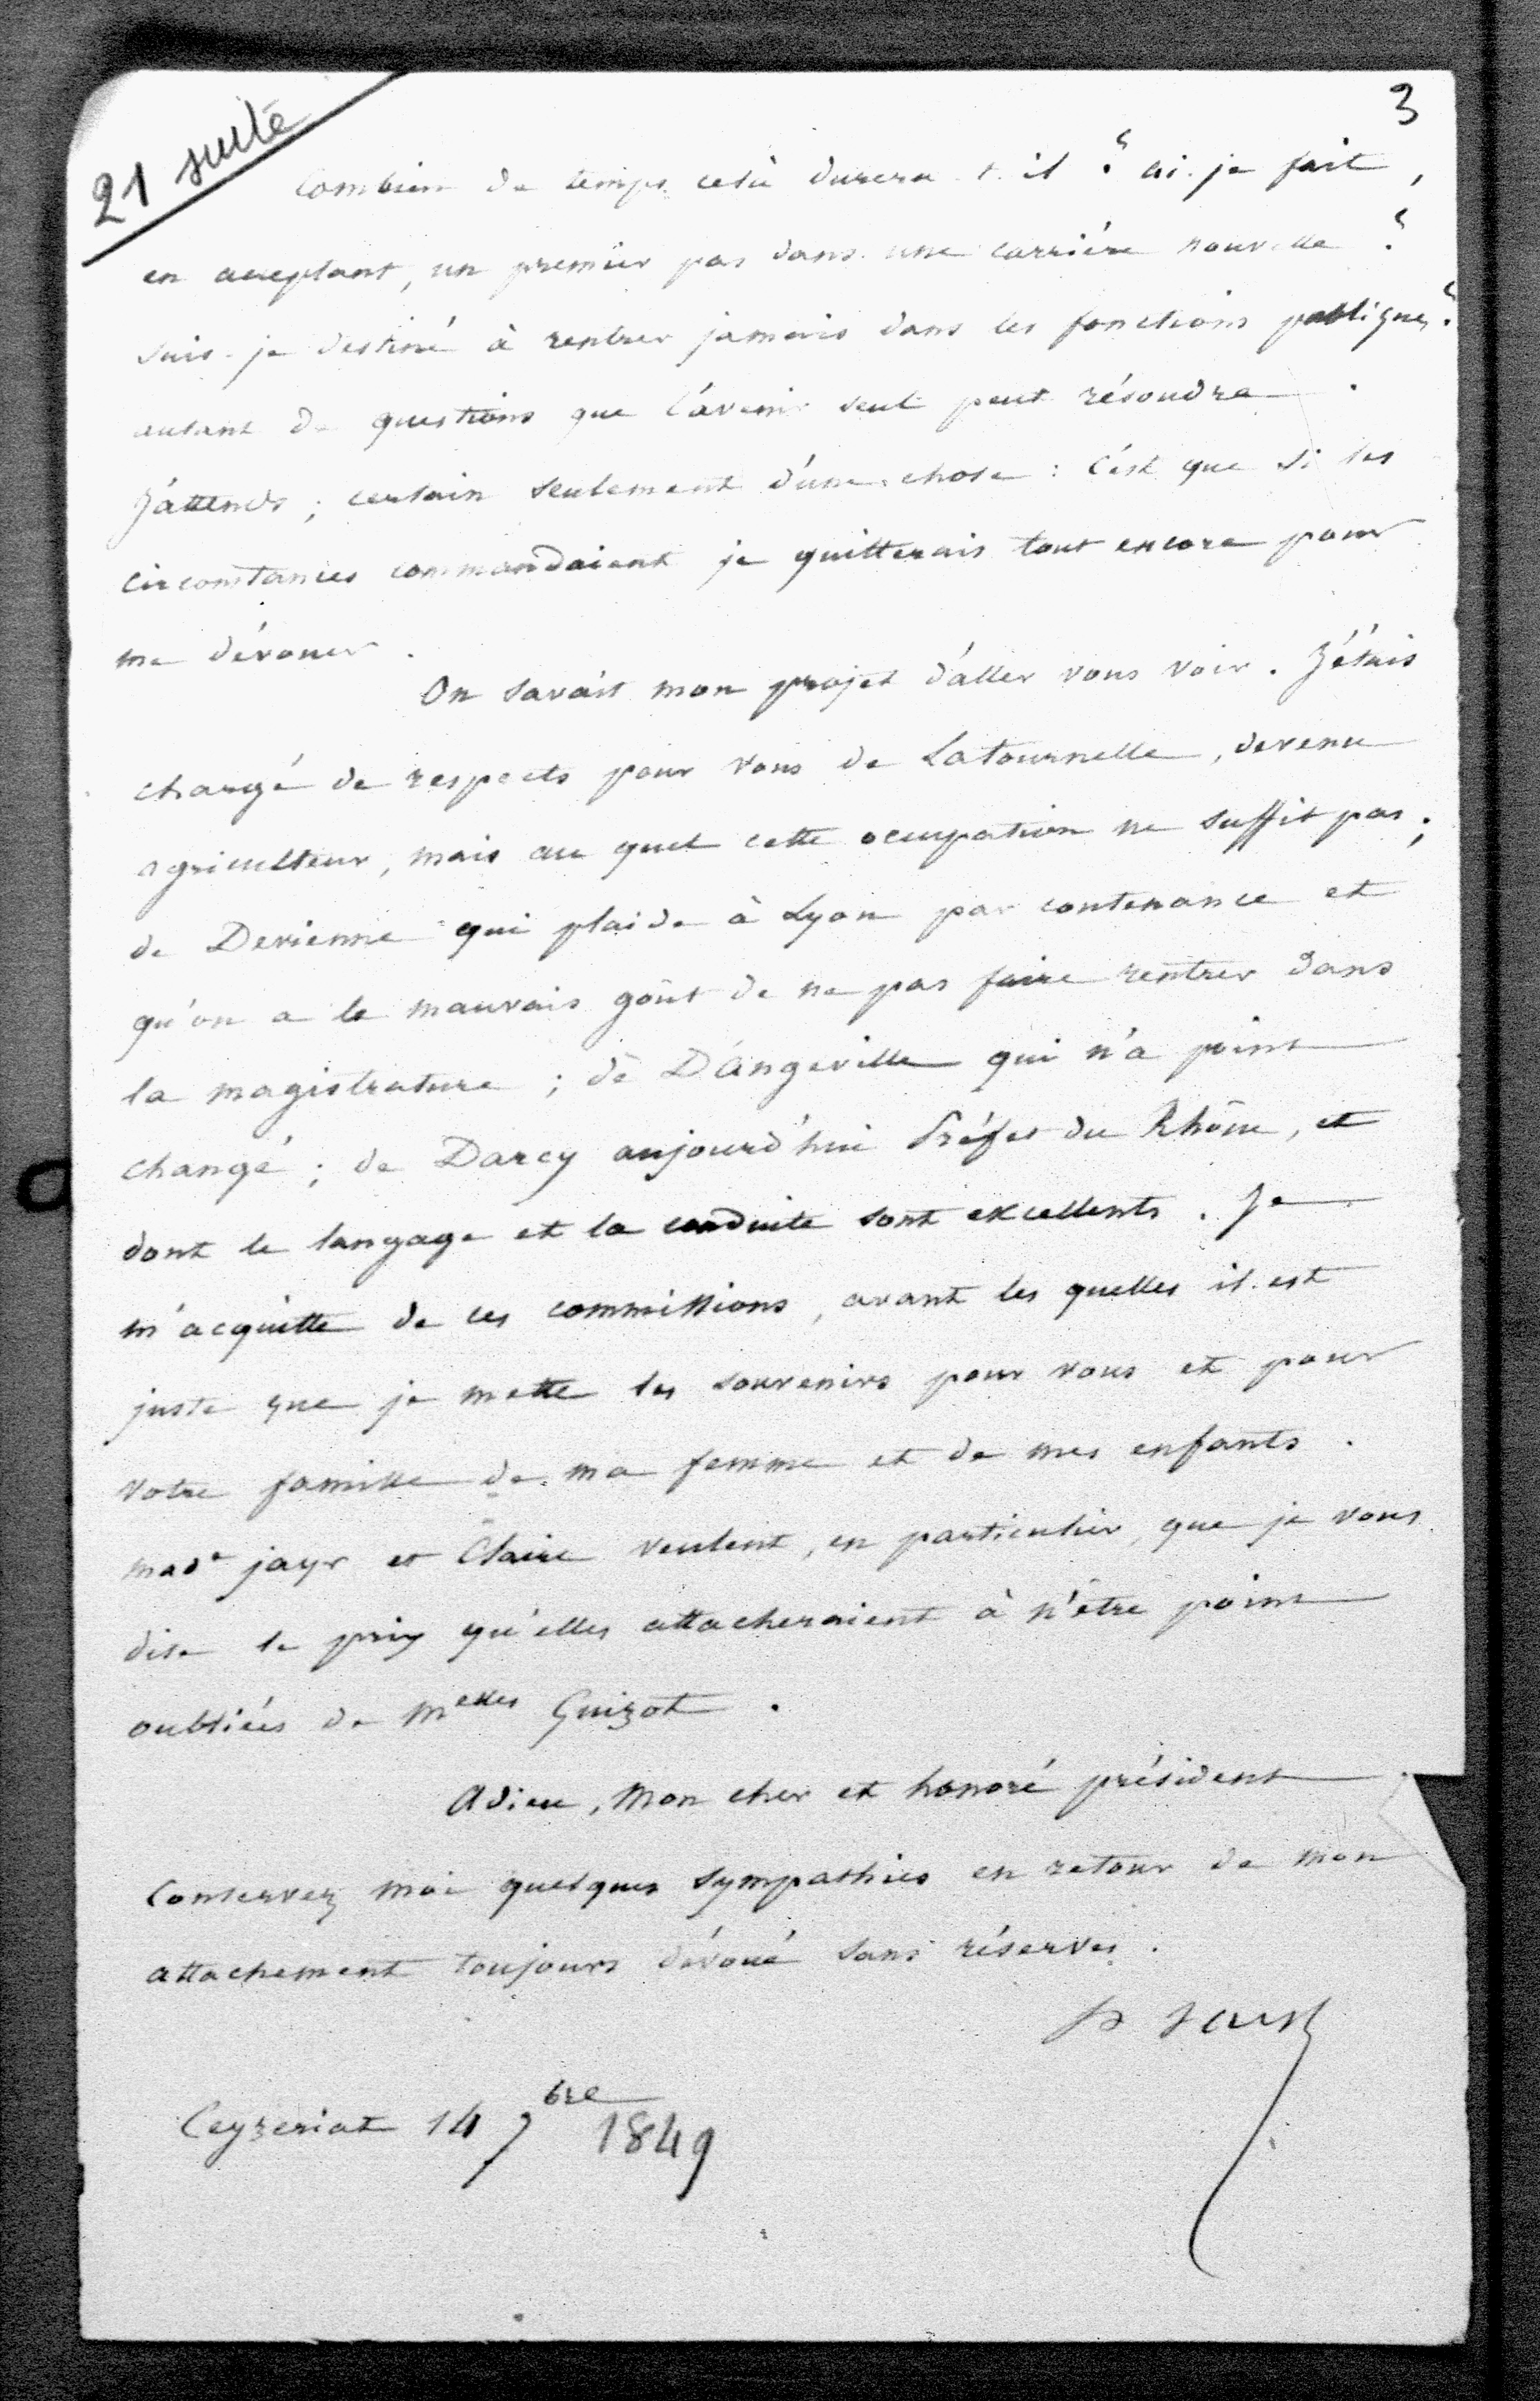 21 suite
3
Combien de temps celà durera-t-il ? ai-je fait,
en acceptant, un premier pas dans une carrière nouvelle ?
suis-je destiné à rentrer jamais dans les fonctions publiques ?
autant de questions que l'avenir seul peut résoudre.
J'attends ; certain seulement d'une chose : c'est que si les
circonstances commandaient je quitterais tout encore pour
me dévouer.
On savait mon projet d'aller vous voir. J'étais
chargé de respects pour vous de Latournelle, devenu
agriculteur, mais au quel cette occupation ne suffit pas ;
de Devienne qui plaide à Lyon par contenance et
qu'on a le mauvais goût de ne pas faire rentrer dans
la magistrature ; de D'Angeville qui n'a point
changé ; de Darcy aujourd'hui Préfet du Rhône, et
dont le langage et la conduite sont excellents. Je
m'acquitte de ces commissions, avant les quelles il est
juste que je mette les souvenirs pour vous et pour
votre famille de ma femme et de mes enfants.
Made jayr et Claire veulent, en particulier, que je vous
dise le prix qu'elles attacheraient à n'être point
oubliées de Melles Guizot.
Adieu, Mon cher et honoré président
Conservez moi quelques sympathies en retour de mon
attachement toujours dévoué sans réserves.
Ceyzeriat 14 7bre 1849